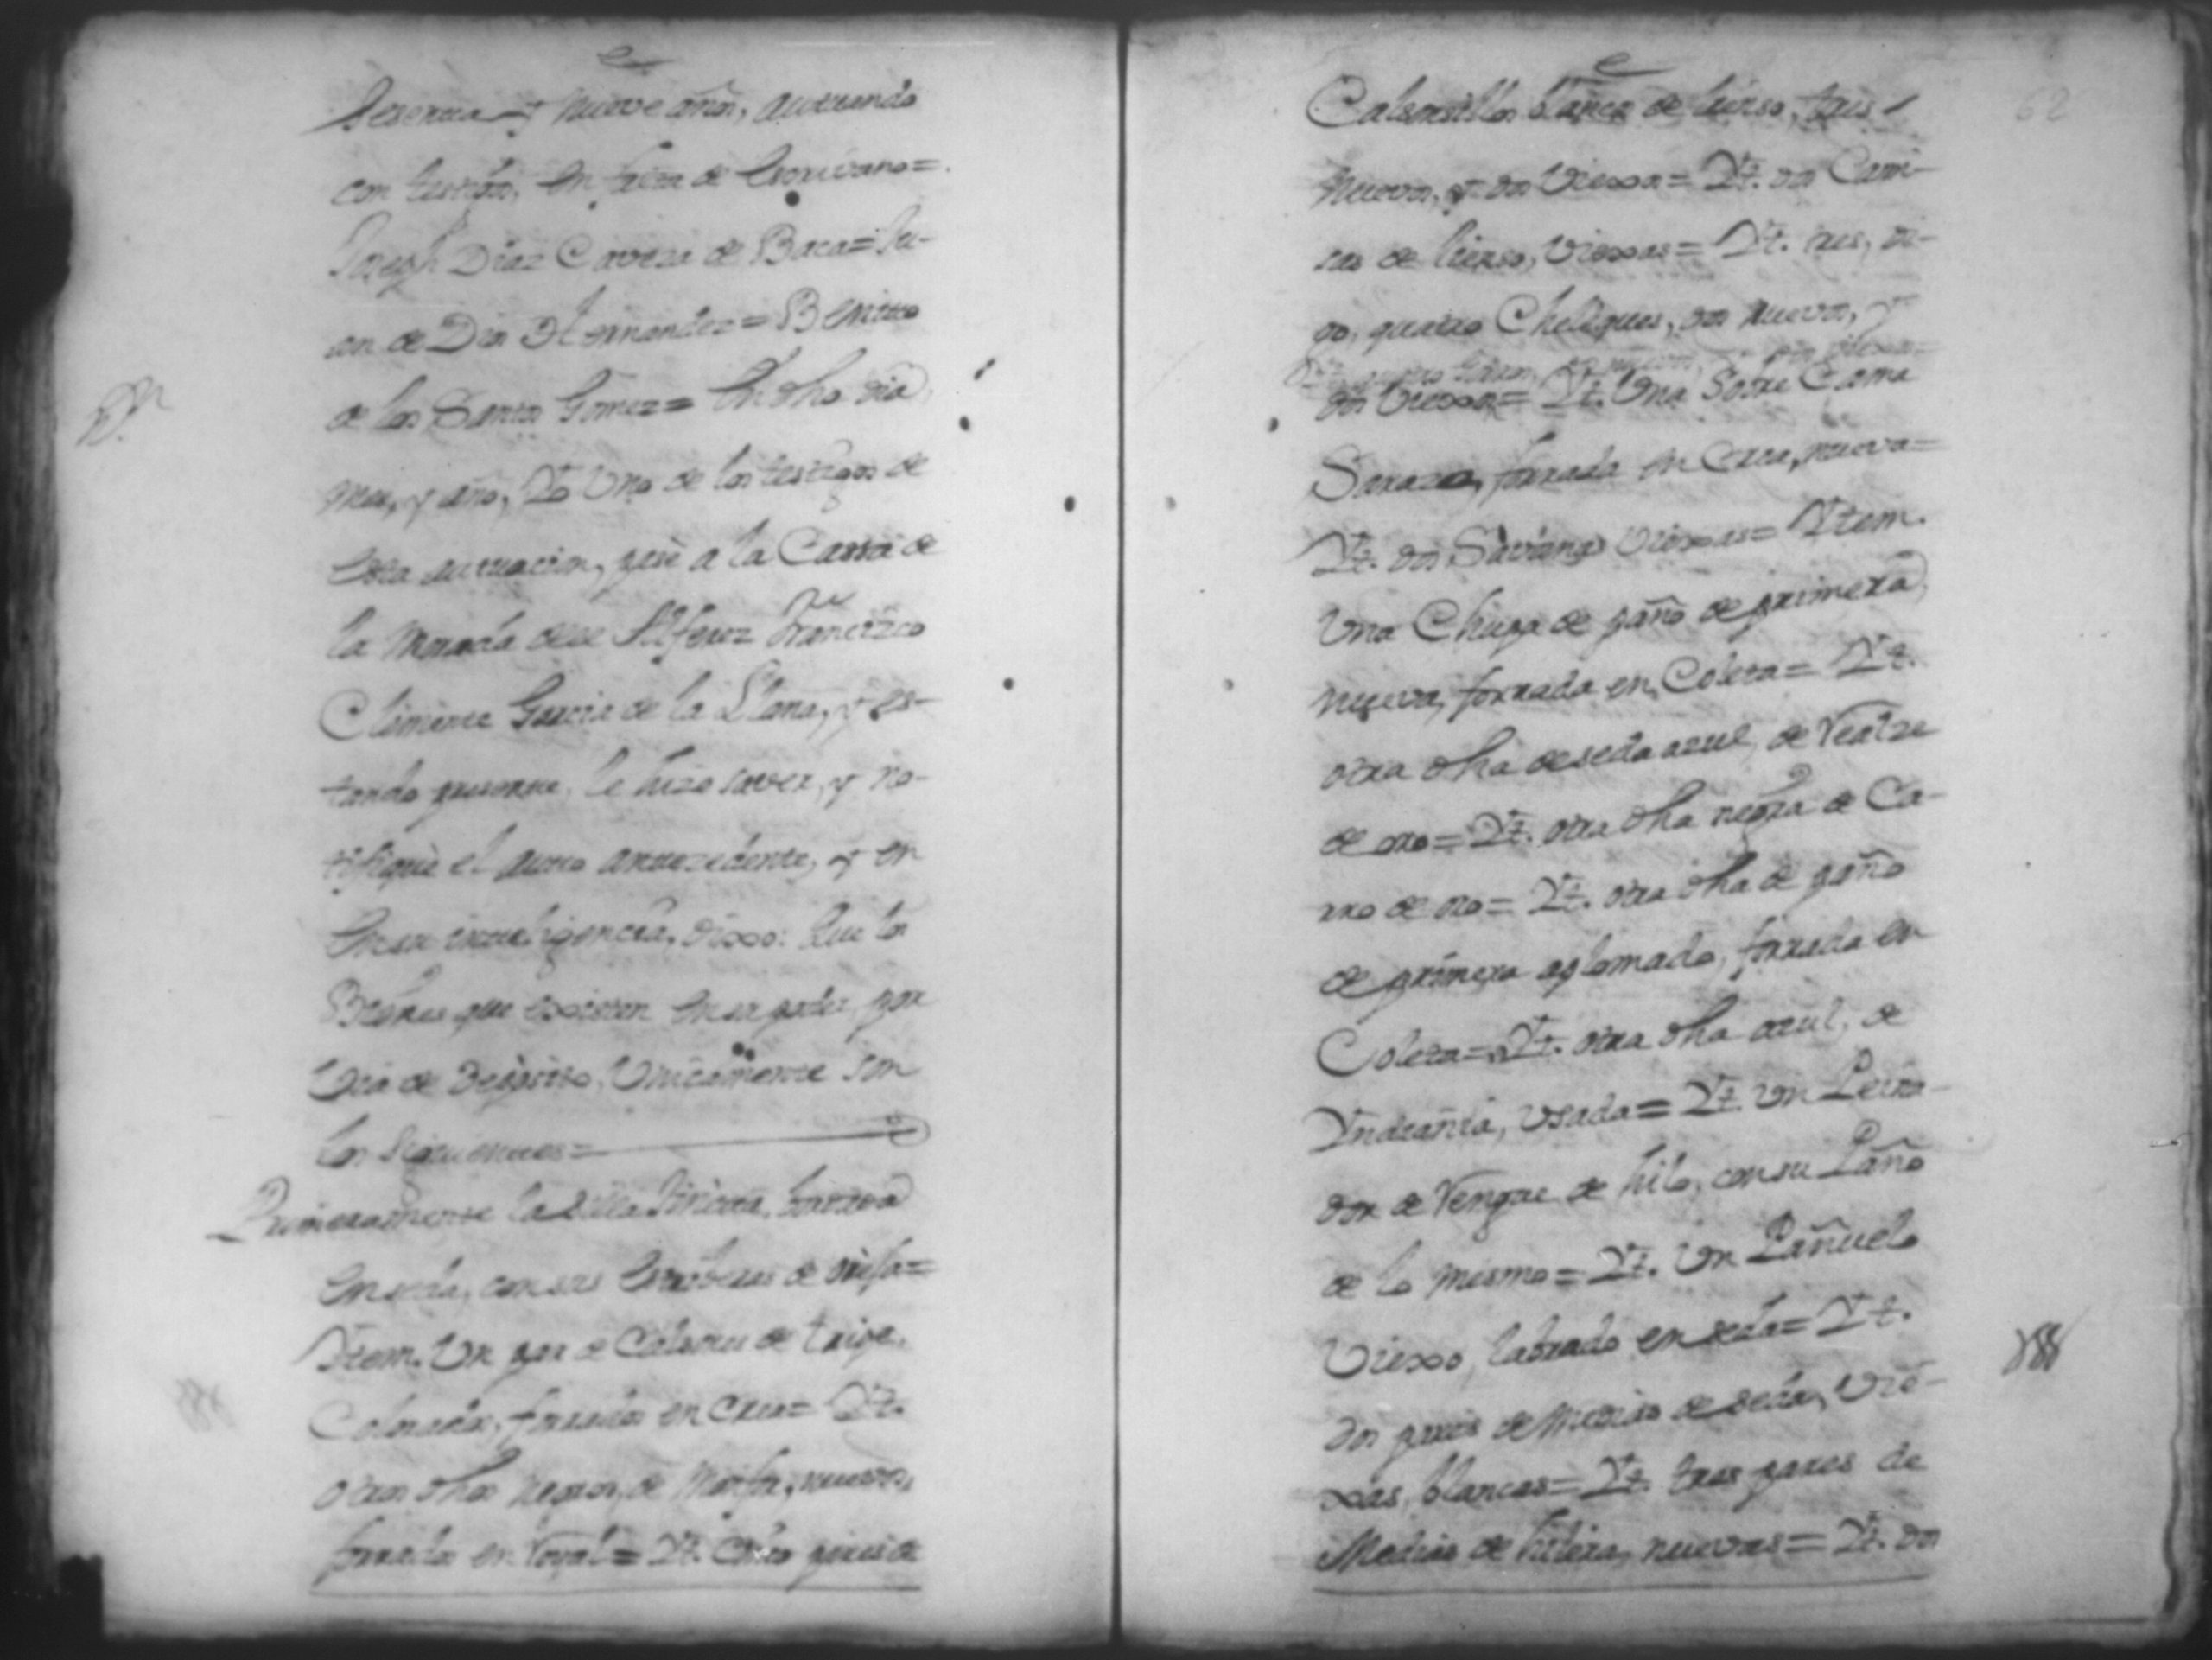 sesenta y nueve años, actuando
con testigos, en falta de Escrivano=
Joseph Diaz Caveza de Baca= Ju-
an de Dios Hernandez= Benitto
de los Santos Gomez= En dho dia,
mes, y año, Yo Uno de los testigos de
esta actuacion, pasè a la Cassa de
la Morada del Alferez Francizco
Clemente Garcia de la Llana, y es-
tando presente, le hize saver, y no-
tifiquè el auto antezedente, y en
en su inteligencia, dixo: Que los
Bienes que existen en su poder, por
via de Deposito, Unicamente son
los siguientes=
Primeramente la Silla
en seda, con sus
Ytem. Un par de Calsones de tripe,
Colorados, forrados en Crea= Yt.
otros dhos negros, de nuevos,
forrados en = Yt. Cinco pares de
62
Calsonsillos blancos de lienso, tres
nuevos, y dos Viexos= Yt. dos Cami-
sas de lienso, Viexas= Yt. tres, di-
go, quatro Cheleques, dos nuevos, y
dos Viexos= Yt. Una Sobre Cama
Saraza, forrada en Crea, nueva=
Yt. dos Savanas Viexas= Ytem.
Una Chupa de paño de primera,
nueva, forrada en Coleta= Yt.
otra dha de seda azul, de
de oro= Yt. otra dha negra de Ca-
rro de oro= Yt. otra dha de paño
de primera aplomado, forrada en
Coleta= Yt. otra dha azul, de
Yndianÿa, Usada= Yt. Un Peina-
dor de Vengue de hilo, con su Paño
de lo mesmo= Yt. Un Pañuelo
Viexo, labrado en seda= Yt.
dos pares de Medias de seda, Vie-
xas, blancas= Yt. tres pares de
Medias de hilera, nuevas= Yt. dos